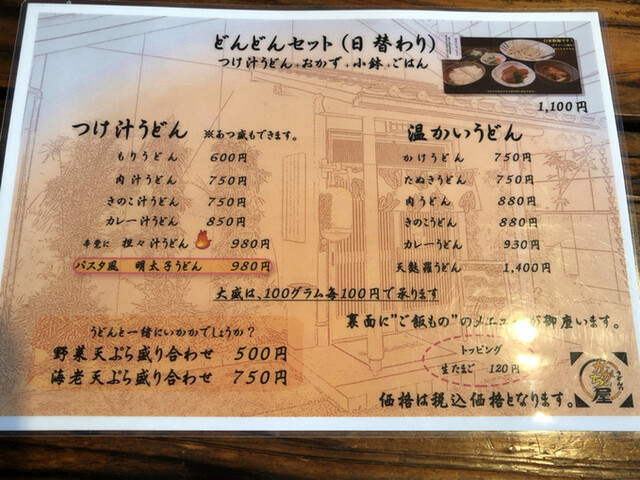 どんどんセット(日替わり)
つけ汁うどん+おかず+小鉢+ごはん
1,100円
つけ汁うどん ※あつ盛もできます。
もりうどん 600円
肉汁うどん 750円
きのこ汁うどん 750円
カレー汁うどん 850円
辛党に 担々汁うどん 980円
パスタ風 明太子うどん 980円
温かいうどん
かけうどん 750円
たぬきうどん 750円
肉うどん 880円
きのこうどん 880円
カレーうどん 930円
天麩羅うどん 1,400円
大盛は、100グラム毎100円で承ります
裏面に"ご飯もの"のメニューが御座います。
うどんと一緒にいかかでしょうか?
野菜天ぷら盛り合わせ 500円
海老天ぷら盛り合わせ 750円
トッピング
生たまご 120円
価格は税込価格となります。
うどんの
屋